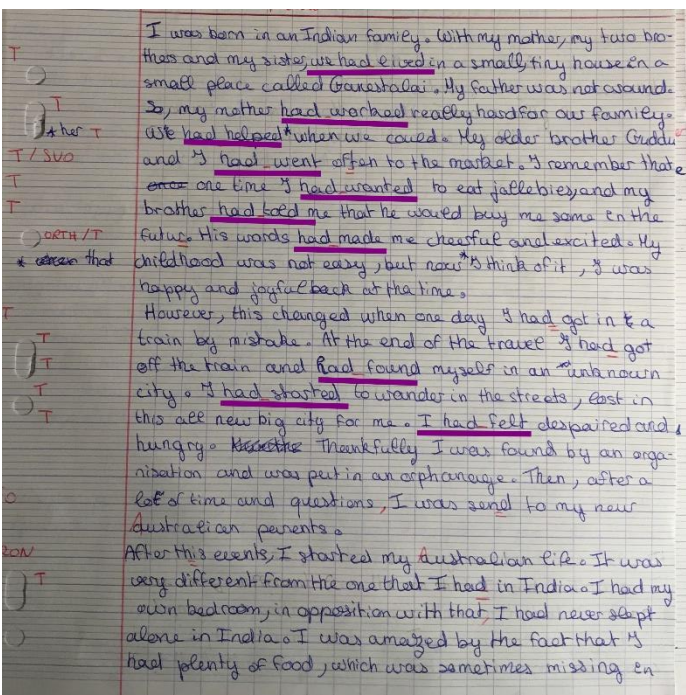 I was born in an Indian family. With my mother, my two bro-
T thers and my sister, we had lived in a small, tiny house in a
small place called Ganestalai. My father was not around.
T So, my mother had worked really hard for our family.
* her T We had helped * when we could. My older brother Guddu
T / SVO and I had went often to the market. I remember that
T one time I had wanted to eat jallebies, and my
T brother had told me that he would buy me some in the
ORTH / T futur. His words had made me cheerful and excited. My
* that childhood was not easy, but now * I think of it, I was
happy and joyful back at the time.
T However, this changed when one day I had got in a
T train by mistake. At the end of the travel I had got
T off the train and had found myself in an unknown
T city. I had started to wander in the streets, lost in
T this all new big city for me. I had felt despaired and
hungry. Thankfully I was found by an orga-
nisation and was put in an orphanage. Then, after a
lot of time and questions, I was send to my new
Australian parents.
After this events, I started my Australian life. It was
T very different from the one that I had in India. I had my
own bedroom, in opposition with that, I had never slept
alone in India. I was amazed by the fact that I
had plenty of food, which was sometimes missing in